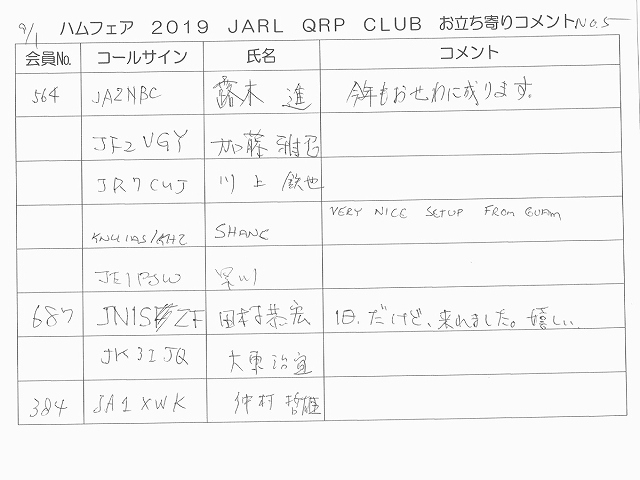 9/1 ハムフェア 2019 JARL QRP CLUB お立ち寄りコメント No.5
会員No. コールサイン 氏名 コメント
564 JA2NBC 露木 進 今年もおせわに成ります。
JF2VGY 加藤 雅
JR7CUJ 川上 鉄也
/KH2 SHANE VERY NICE SETUP FROM GUAM
JE1PSW 早川
687 JN1S ZF 田村 恭宏 1日だけど、来れました。嬉しい
JK3IJQ 大東 治宣
384 JA1XWK 仲村 哲雄